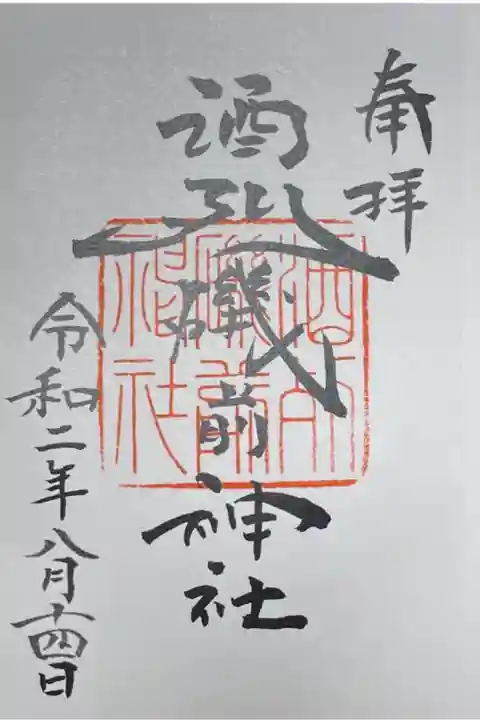 奉拝
酒列磯前神社
令和二年八月十四日
酒列
磯前
神社